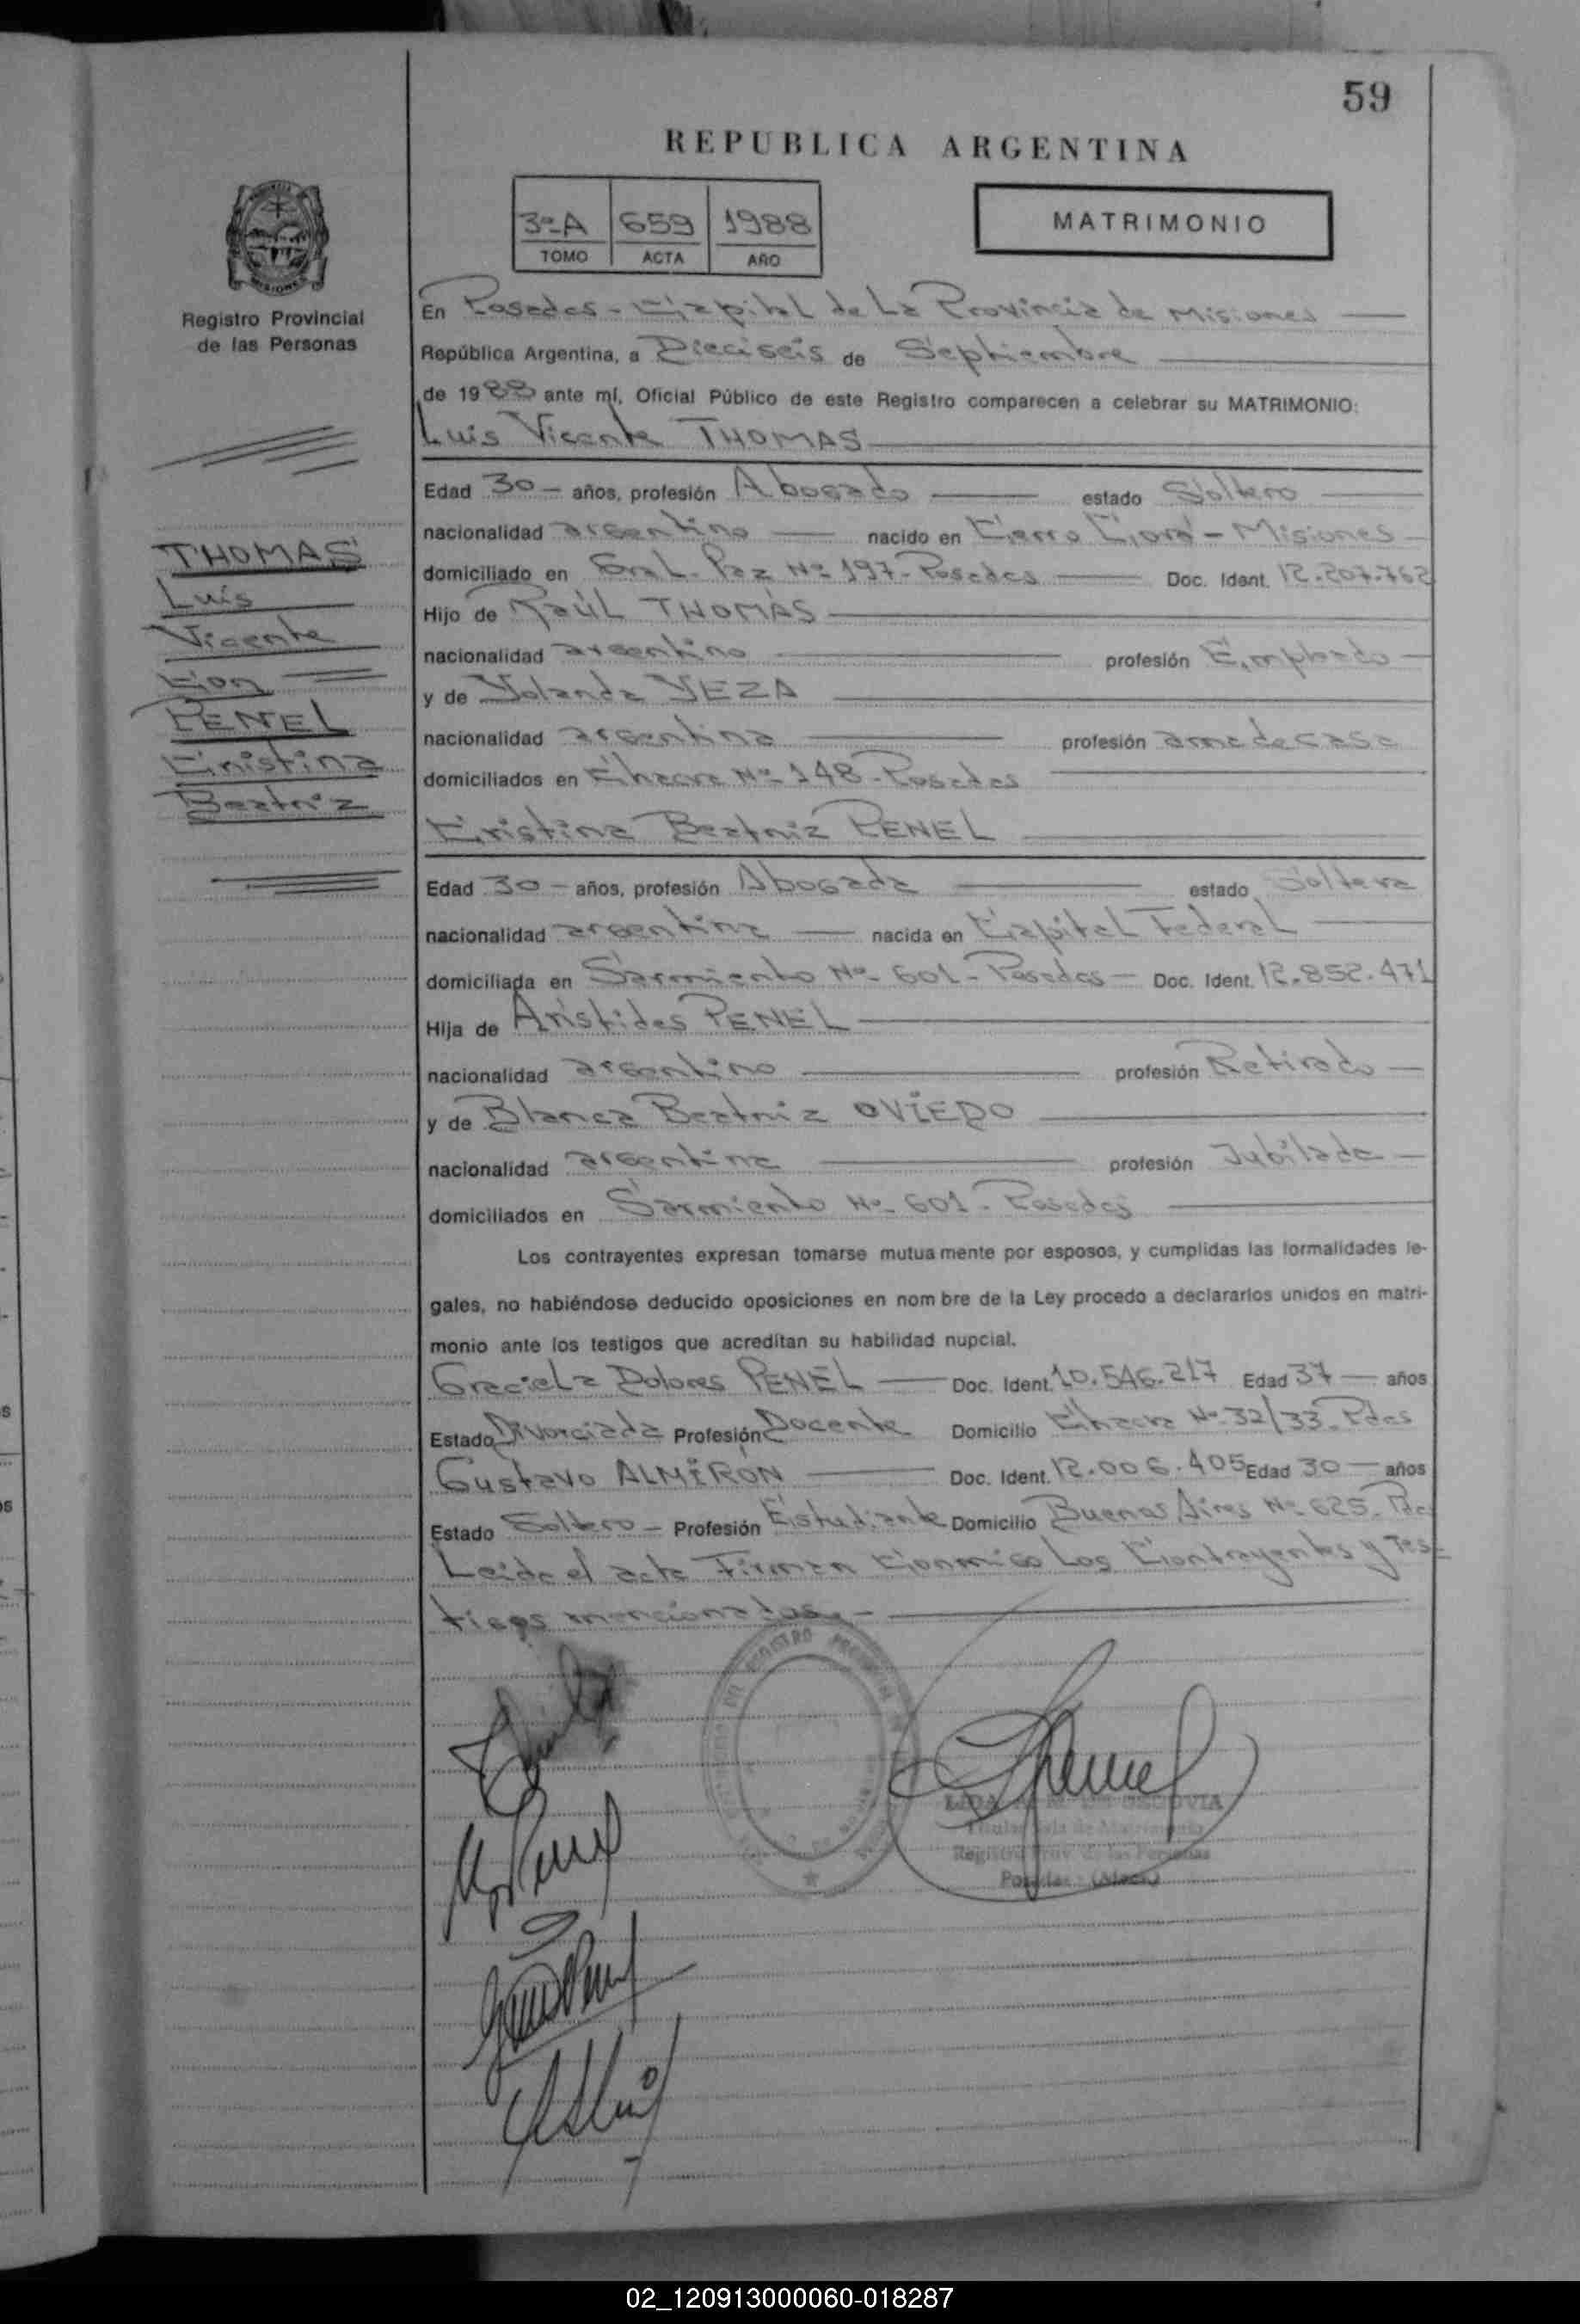 59
REPUBLICA ARGENTINA
3ºA 659 1988
TOMO ACTA AÑO
MATRIMONIO
Registro Provincial
de las Personas
THOMAS
Luis
Vicente
Con
PENEL
Cristina
Beatriz
En Posadas - Capital de La Provincia de Misiones
República Argentina, a Dieciseis de Septiembre
de 1988 ante mí, Oficial Público de este Registro comparecen a celebrar su MATRIMONIO:
Luis Vicente THOMAS
Edad 30 - años, profesión Abogado estado Soltero
nacionalidad argentino nacido en Cerro Corá - Misiones
domiciliado en Gral. Paz Nº 197 - Posadas Doc. Ident. 12.207.762
Hijo de Raúl THOMAS
nacionalidad argentino profesión Empleado
y de Yolanda YEZA
nacionalidad argentina profesión ama de casa
domiciliados en Chacra Nº 148 - Posadas
Cristina Beatriz PENEL
Edad 30 - años, profesión Abogada estado Soltera
nacionalidad argentina nacida en Capital Federal
domiciliada en Sarmiento Nº 601 - Posadas - Doc. Ident. 12.852.471
Hija de Arístides PENEL
nacionalidad argentino profesión Retirado
y de Blanca Beatriz OVIEDO
nacionalidad argentina profesión Jubilada
domiciliados en Sarmiento Nº 601 - Posadas
Los contrayentes expresan tomarse mutuamente por esposos, y cumplidas las formalidades le-
gales, no habiéndose deducido oposiciones en nombre de la Ley procedo a declararlos unidos en matri-
monio ante los testigos que acreditan su habilidad nupcial.
Graciela Dolores PENEL Doc. Ident. 10.546.217 Edad 37 años
Estado Divorciada Profesión Docente Domicilio Chacra Nº 32/33 - Pdas
Gustavo ALMIRÓN Doc. Ident. 12.006.405 Edad 30 años
Estado Soltero - Profesión Estudiante Domicilio Buenos Aires Nº 625 - Pdas
Leida el acta Firman Conmigo Los Contrayentes y Tes-
tigos mencionados.-
SEGOVIA
Titular Sala de Matrimonio
Registro Prov. de las Personas
Posadas (Mnes.)
02_120913000060-018287